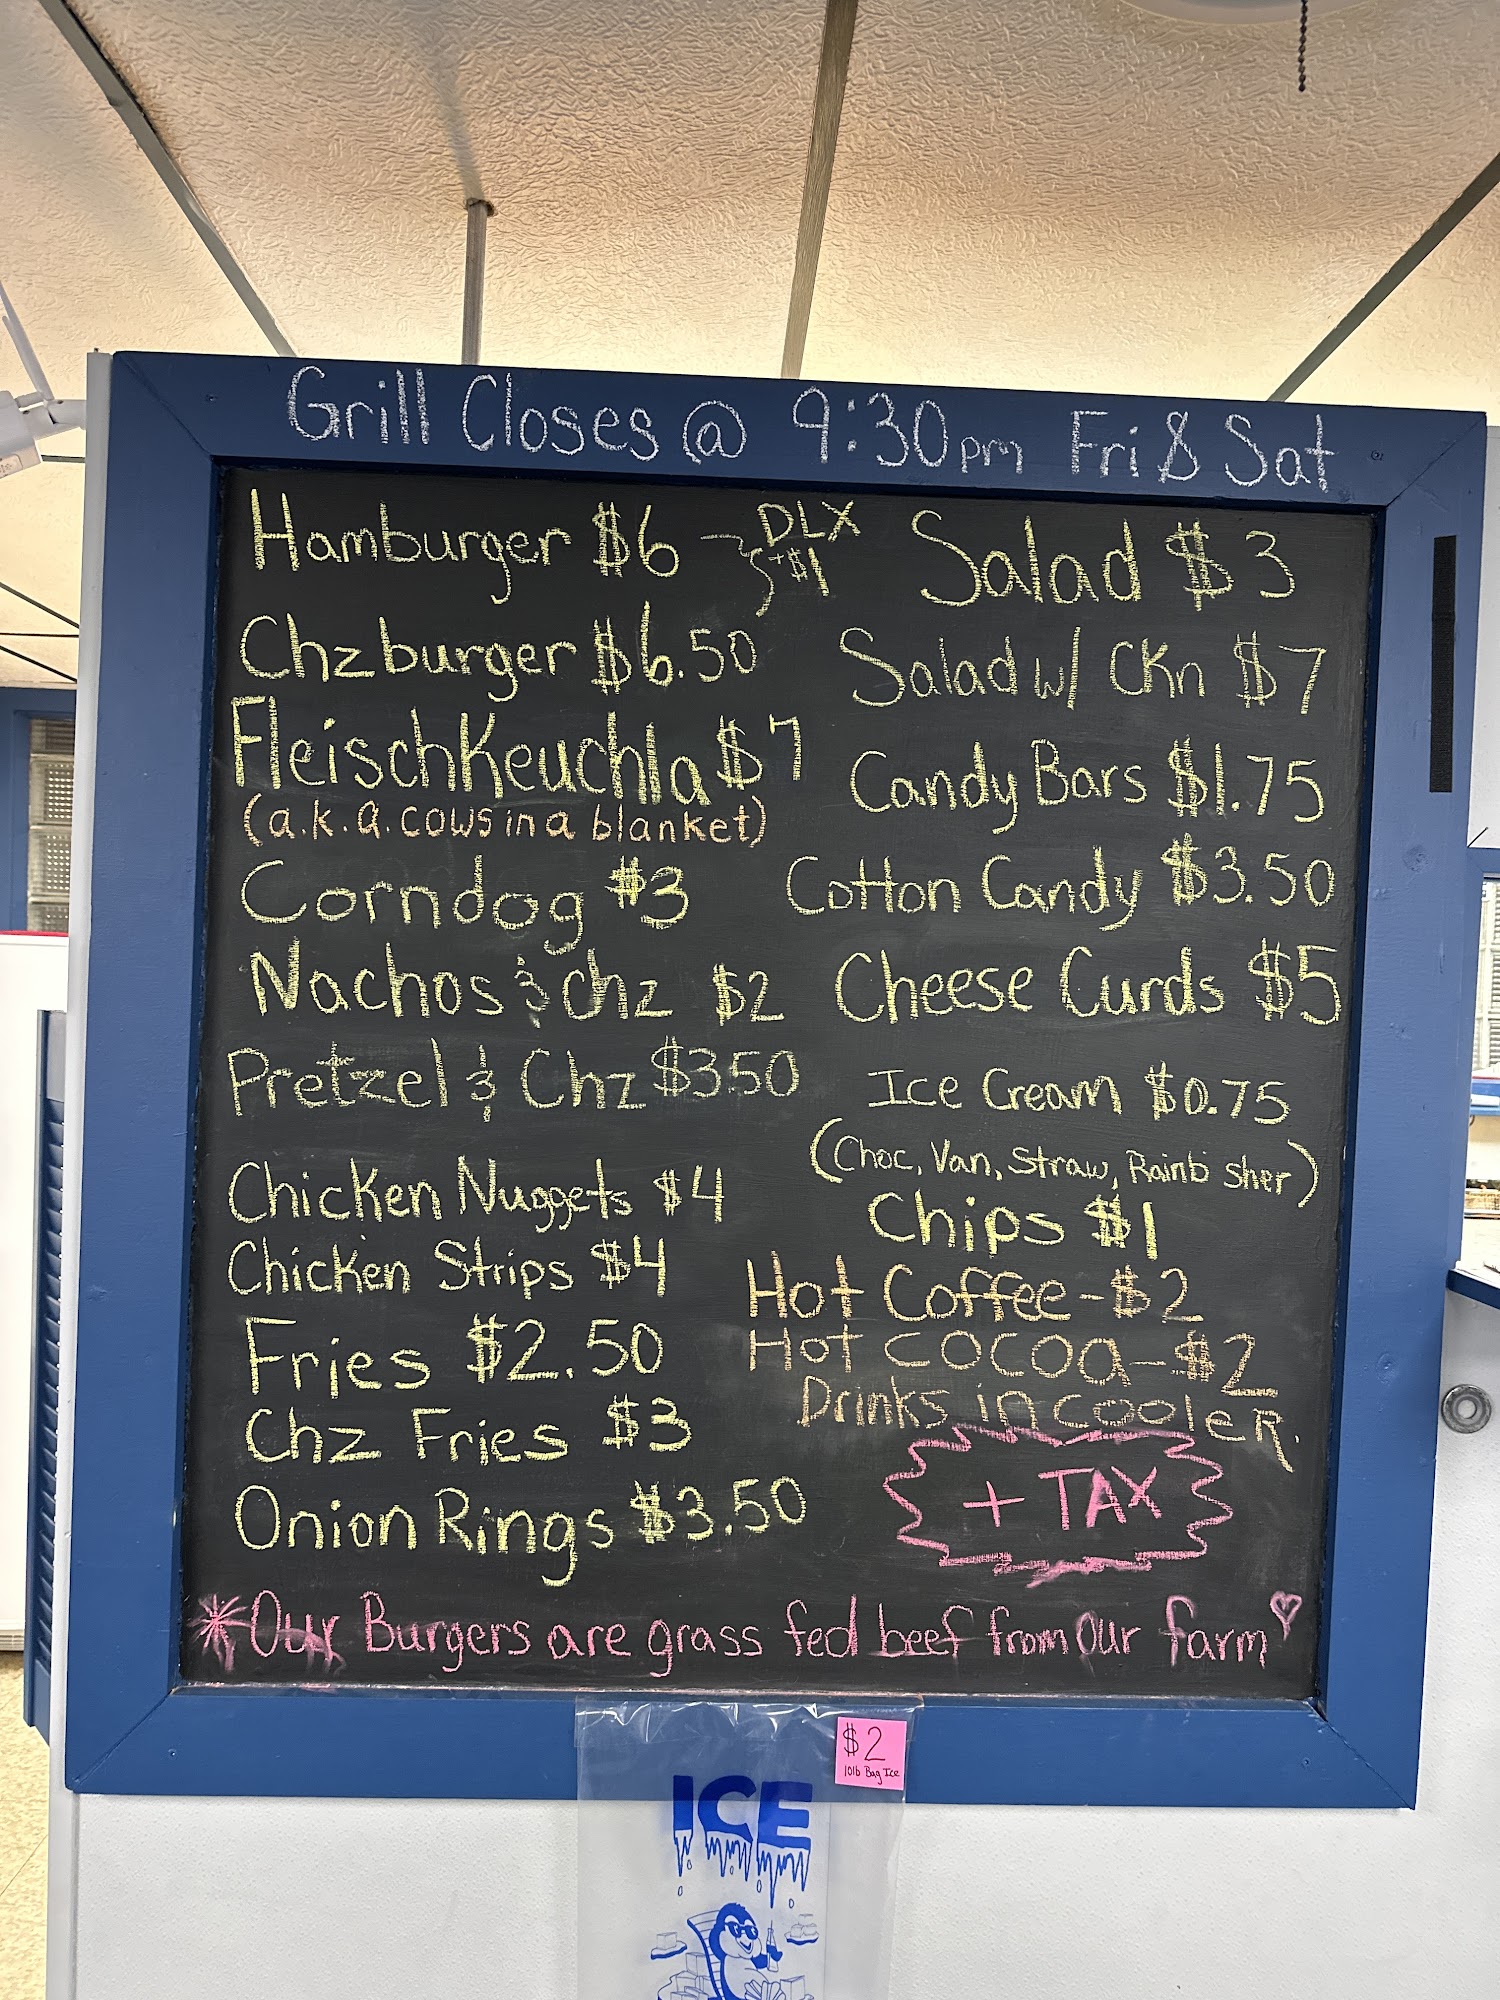 Grill Closes @ 9:30pm Fri & Sat
Hamburger $6 DLX
+$1
Chzburger $6.50
FleischKeuchla $7
(a.k.a. cows in a blanket)
Corndog $3
Nachos & Chz $2
Pretzel & Chz $3.50
Chicken Nuggets $4
Chicken Strips $4
Fries $2.50
Chz Fries $3
Onion Rings $3.50
Salad $3
Salad w/ CKn $7
Candy Bars $1.75
Cotton Candy $3.50
Cheese Curds $5
Ice Cream $0.75
(Choc, Van, Straw, Rainb sher)
Chips $1
Hot Coffee - $2
Hot COCOa - $2
Drinks in cooleR.
+ TAX
*Our Burgers are grass fed beef from Our farm
$2
10lb Bag Ice
ICE